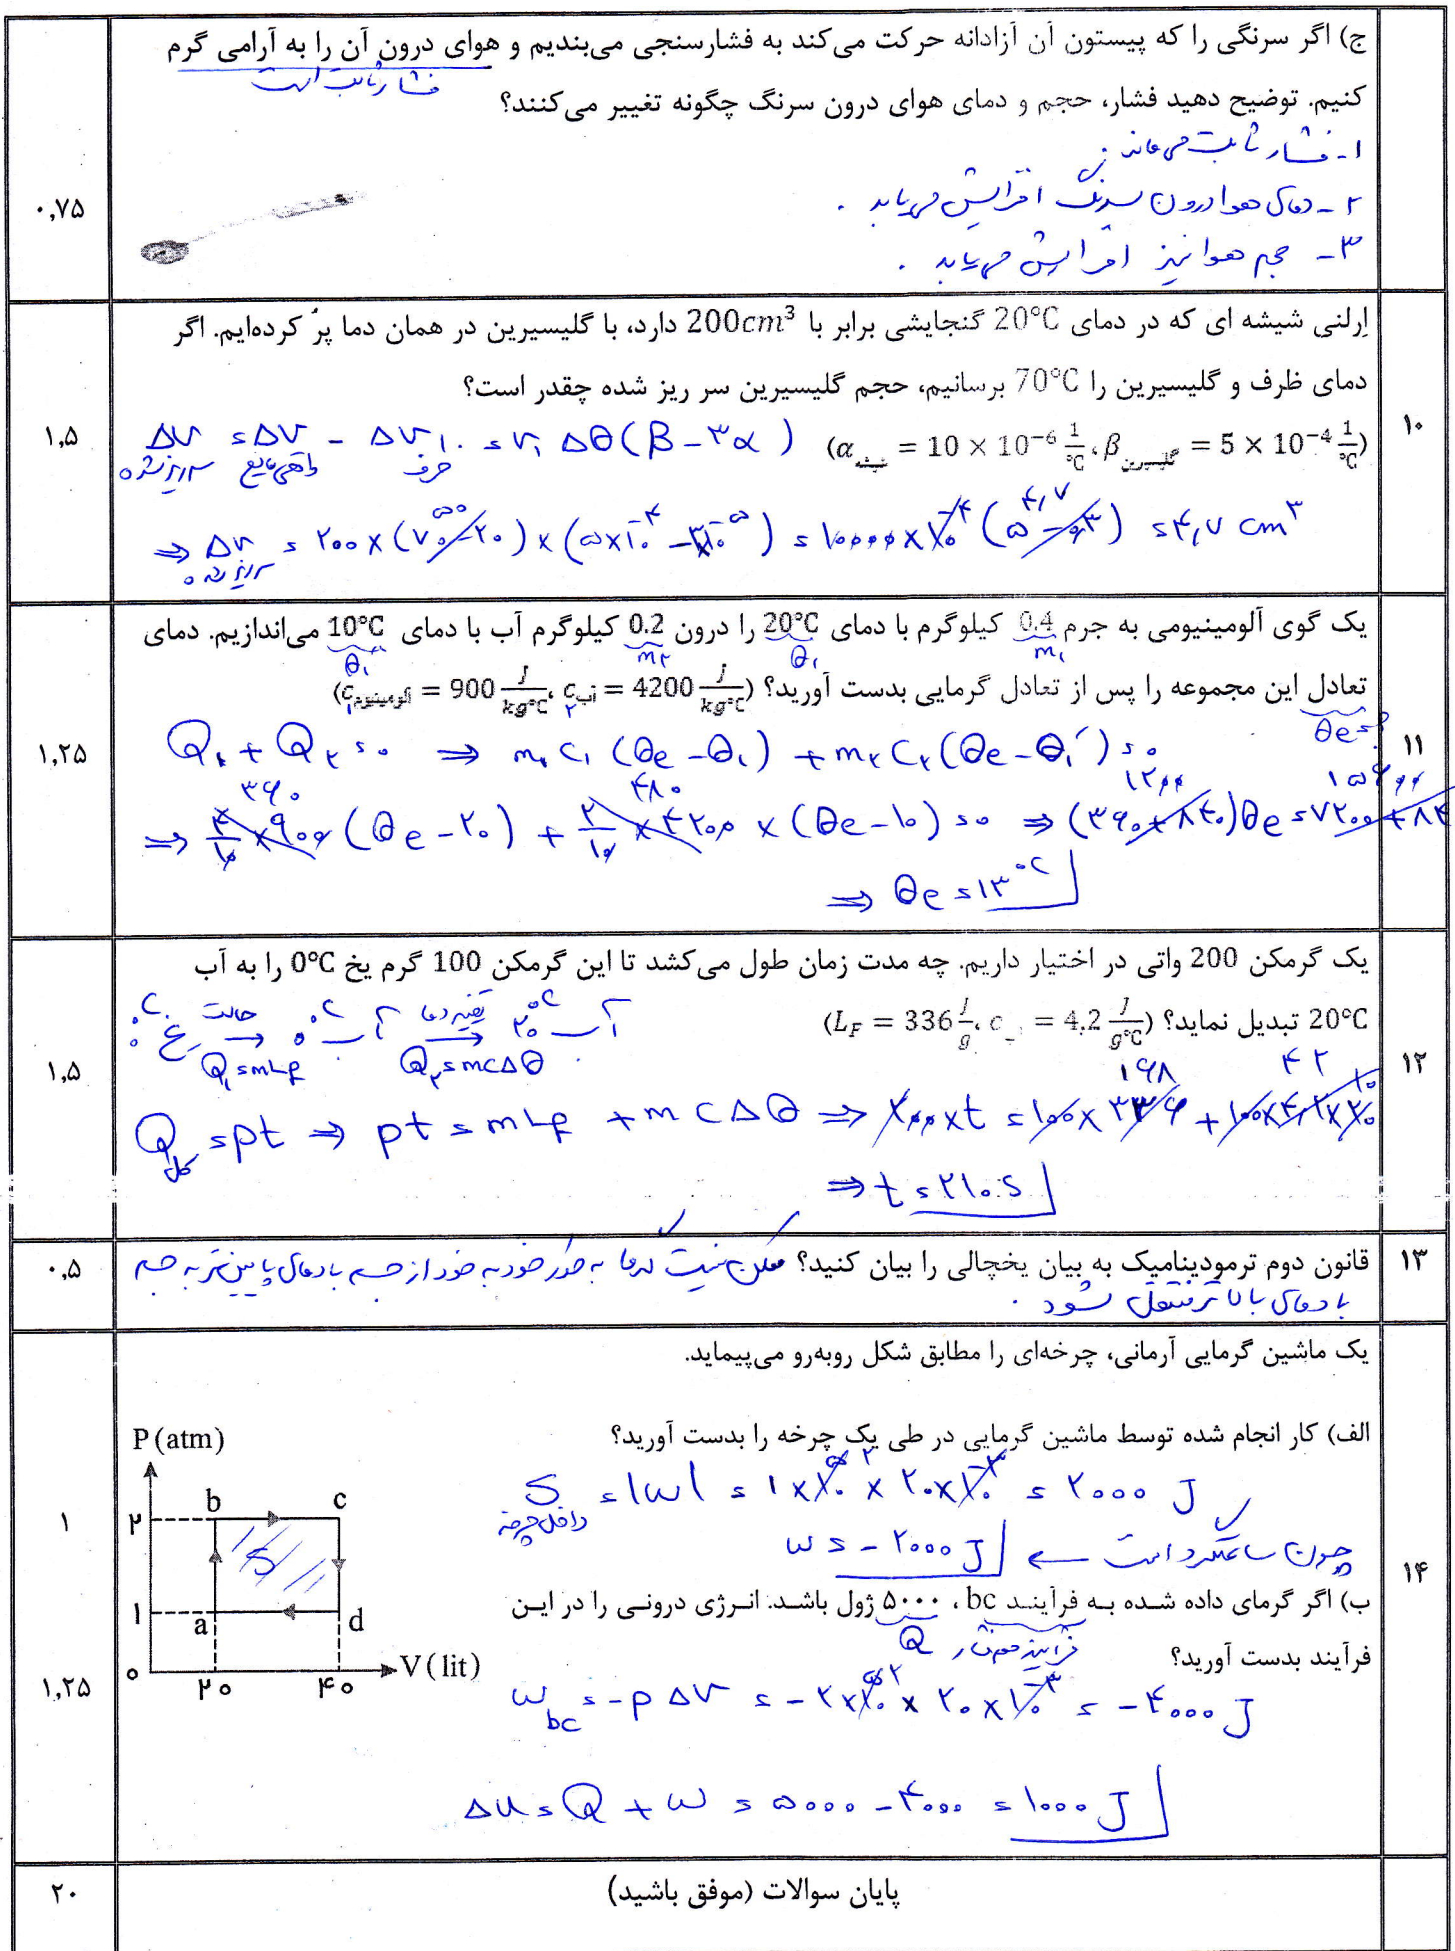 ج) اگر سرنگی را که پیستون آن آزادانه حرکت می‌کند به فشارسنجی می‌بندیم و هوای درون آن را به آرامی گرم
فشار ثابت است
کنیم. توضیح دهید فشار، حجم و دمای هوای درون سرنگ چگونه تغییر می‌کنند؟
۱- فشار ثابت می‌ماند.
۲- دمای هوا درون سرنگ افزایش می‌یابد.
۳- حجم هوا نیز افزایش می‌یابد.
۰,۷۵
اِرلنی شیشه ای که در دمای 20°C گنجایشی برابر با 200cm³ دارد، با گلیسیرین در همان دما پرُ کرده‌ایم. اگر
دمای ظرف و گلیسیرین را 70°C برسانیم، حجم گلیسیرین سر ریز شده چقدر است؟
۱۰
۱,۵
(α شیشه = 10 × 10⁻⁶ 1/°C ، β گلیسیرین = 5 × 10⁻⁴ 1/°C)
ΔV سرریز شده = ΔV واقعی مایع - ΔV ظرف = V₁ Δθ(β - ۳α)
⇒ ΔV سرریز شده = ۲۰۰ × (۷۰-۲۰) × (۵×۱۰⁻⁴ - ۳×۱۰⁻⁵) = ۱۰۰۰۰ × ۱۰⁻⁴ (۵ - ۰٫۳) = ۴,۷ cm³
یک گوی آلومینیومی به جرم 0.4 کیلوگرم با دمای 20°C را درون 0.2 کیلوگرم آب با دمای 10°C می‌اندازیم. دمای
m₁ θ₁ m₂ θ₁′
تعادل این مجموعه را پس از تعادل گرمایی بدست آورید؟ (c آب = 4200 J/kg°C ، c آلومینیوم = 900 J/kg°C)
θe=?
۱۱
۱,۲۵
Q₁ + Q₂ = ۰ ⇒ m₁ c₁ (θe - θ₁) + m₂ c₂ (θe - θ₁′) = ۰
⇒ ۴/۱۰ × ۹۰۰ (θe - ۲۰) + ۲/۱۰ × ۴۲۰۰ × (θe - ۱۰) = ۰ ⇒ (۳۶۰ + ۸۴۰)θe = ۷۲۰۰ + ۸۴
⇒ θe = ۱۳°C
یک گرمکن 200 واتی در اختیار داریم. چه مدت زمان طول می‌کشد تا این گرمکن 100 گرم یخ 0°C را به آب
20°C تبدیل نماید؟ (L_F = 336 J/g ، c = 4.2 J/g°C)
۱۲
۱,۵
یخ ۰°C → حالت Q₁=mLF آب ۰°C → تغییر دما Q₂=mcΔθ آب ۲۰°C
Q کل = pt ⇒ pt = mLF + mcΔθ ⇒ ۲۰۰ × t = ۱۰۰ × ۳۳۶ + ۱۰۰ × ۴,۲ × ۲۰
⇒ t = ۲۱۰ s
۱۳
قانون دوم ترمودینامیک به بیان یخچالی را بیان کنید؟ ممکن نیست گرما به طور خود به خود از جسم با دمای پایین‌تر به جسم
با دمای بالاتر منتقل شود.
۰,۵
یک ماشین گرمایی آرمانی، چرخه‌ای را مطابق شکل روبه‌رو می‌پیماید.
الف) کار انجام شده توسط ماشین گرمایی در طی یک چرخه را بدست آورید؟
S داخل چرخه = |W| = ۱×۱۰⁵ × ۲۰×۱۰⁻³ = ۲۰۰۰ J
چون ساعتگرد است ← W = -۲۰۰۰ J
۱
۱۴
ب) اگر گرمای داده شده به فرآیند bc ، ۵۰۰۰ ژول باشد. انرژی درونی را در این
فرآیند هم‌فشار Q
فرآیند بدست آورید؟
۱,۲۵
W bc = -P ΔV = -۲×۱۰⁵ × ۲۰×۱۰⁻³ = -۴۰۰۰ J
ΔU = Q + W = ۵۰۰۰ - ۴۰۰۰ = ۱۰۰۰ J
P(atm)
b c
۲
S
۱
a d
۰ ۲۰ ۴۰ V(lit)
پایان سوالات (موفق باشید)
۲۰